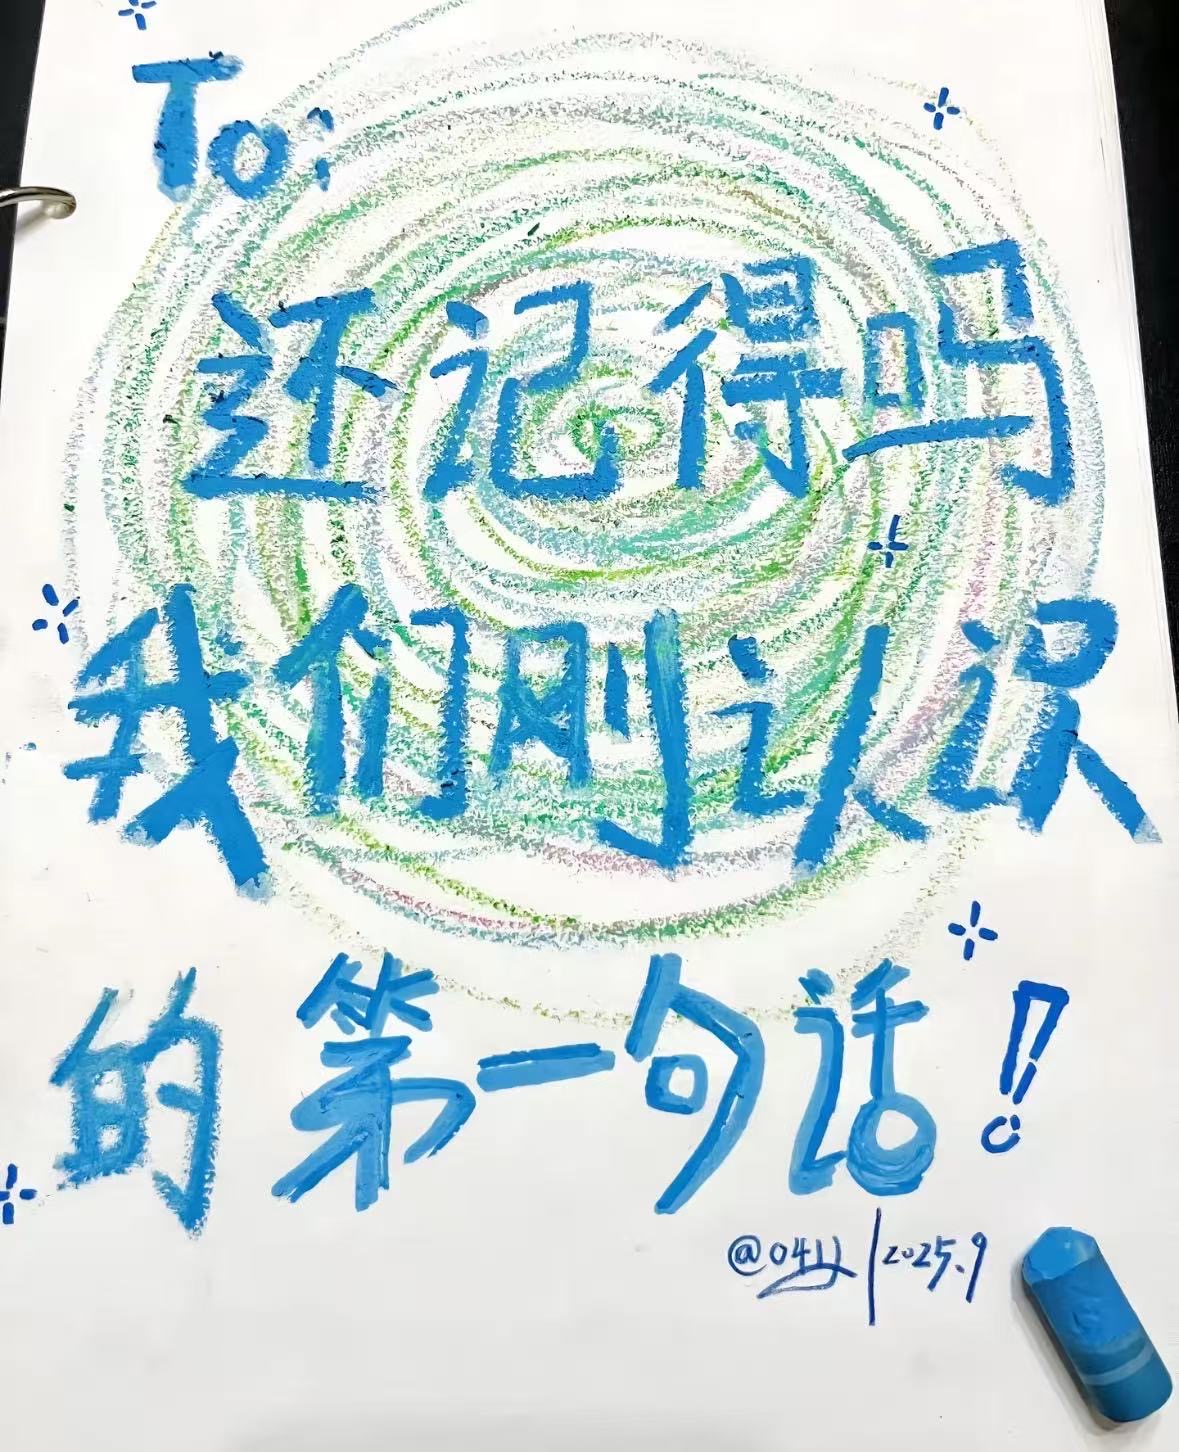 To:
还记得吗
我们刚认识
的第一句话!
@04山 | 2025.9